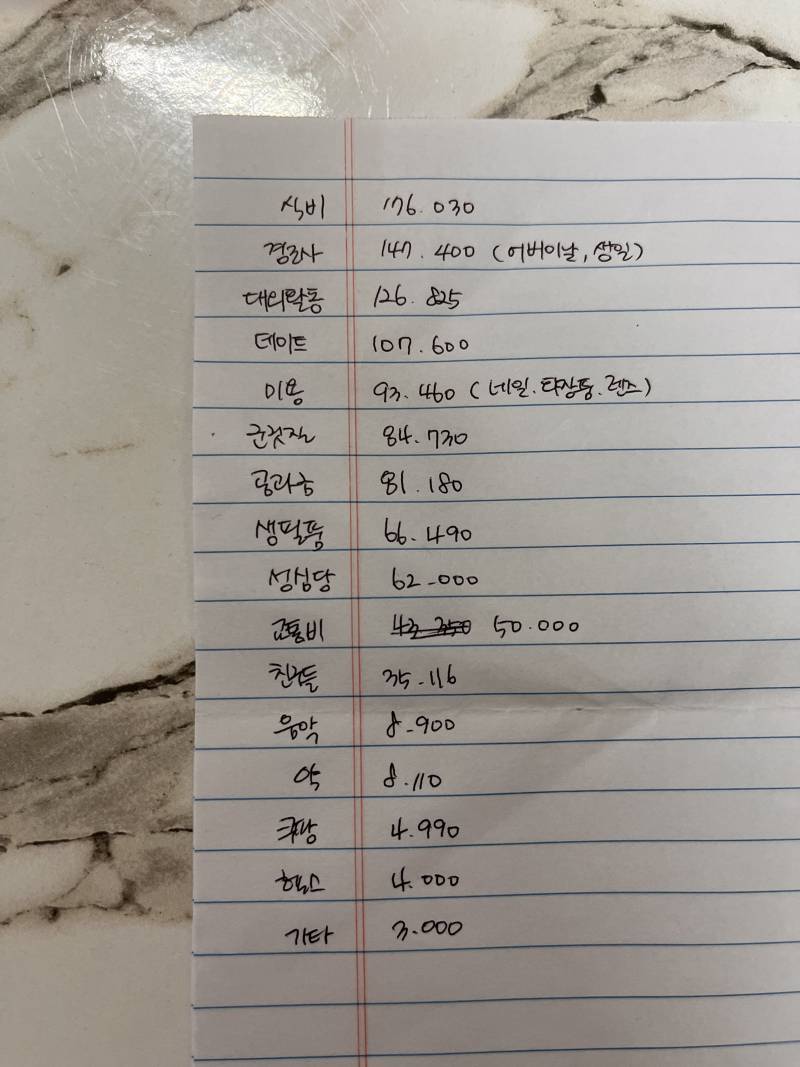 식비 176.030
경조사 147.400 (어버이날, 생일)
대외활동 126.825
데이트 107.600
미용 93.460 (네일. 화장품. 렌즈)
군것질 84.730
공과금 81.180
생필품 66.490
성심당 62-000
교통비 43.350 50.000
친구들 35-116
음악 8-900
약 8.110
쿠팡 4.990
헬스 4.000
기타 3.000